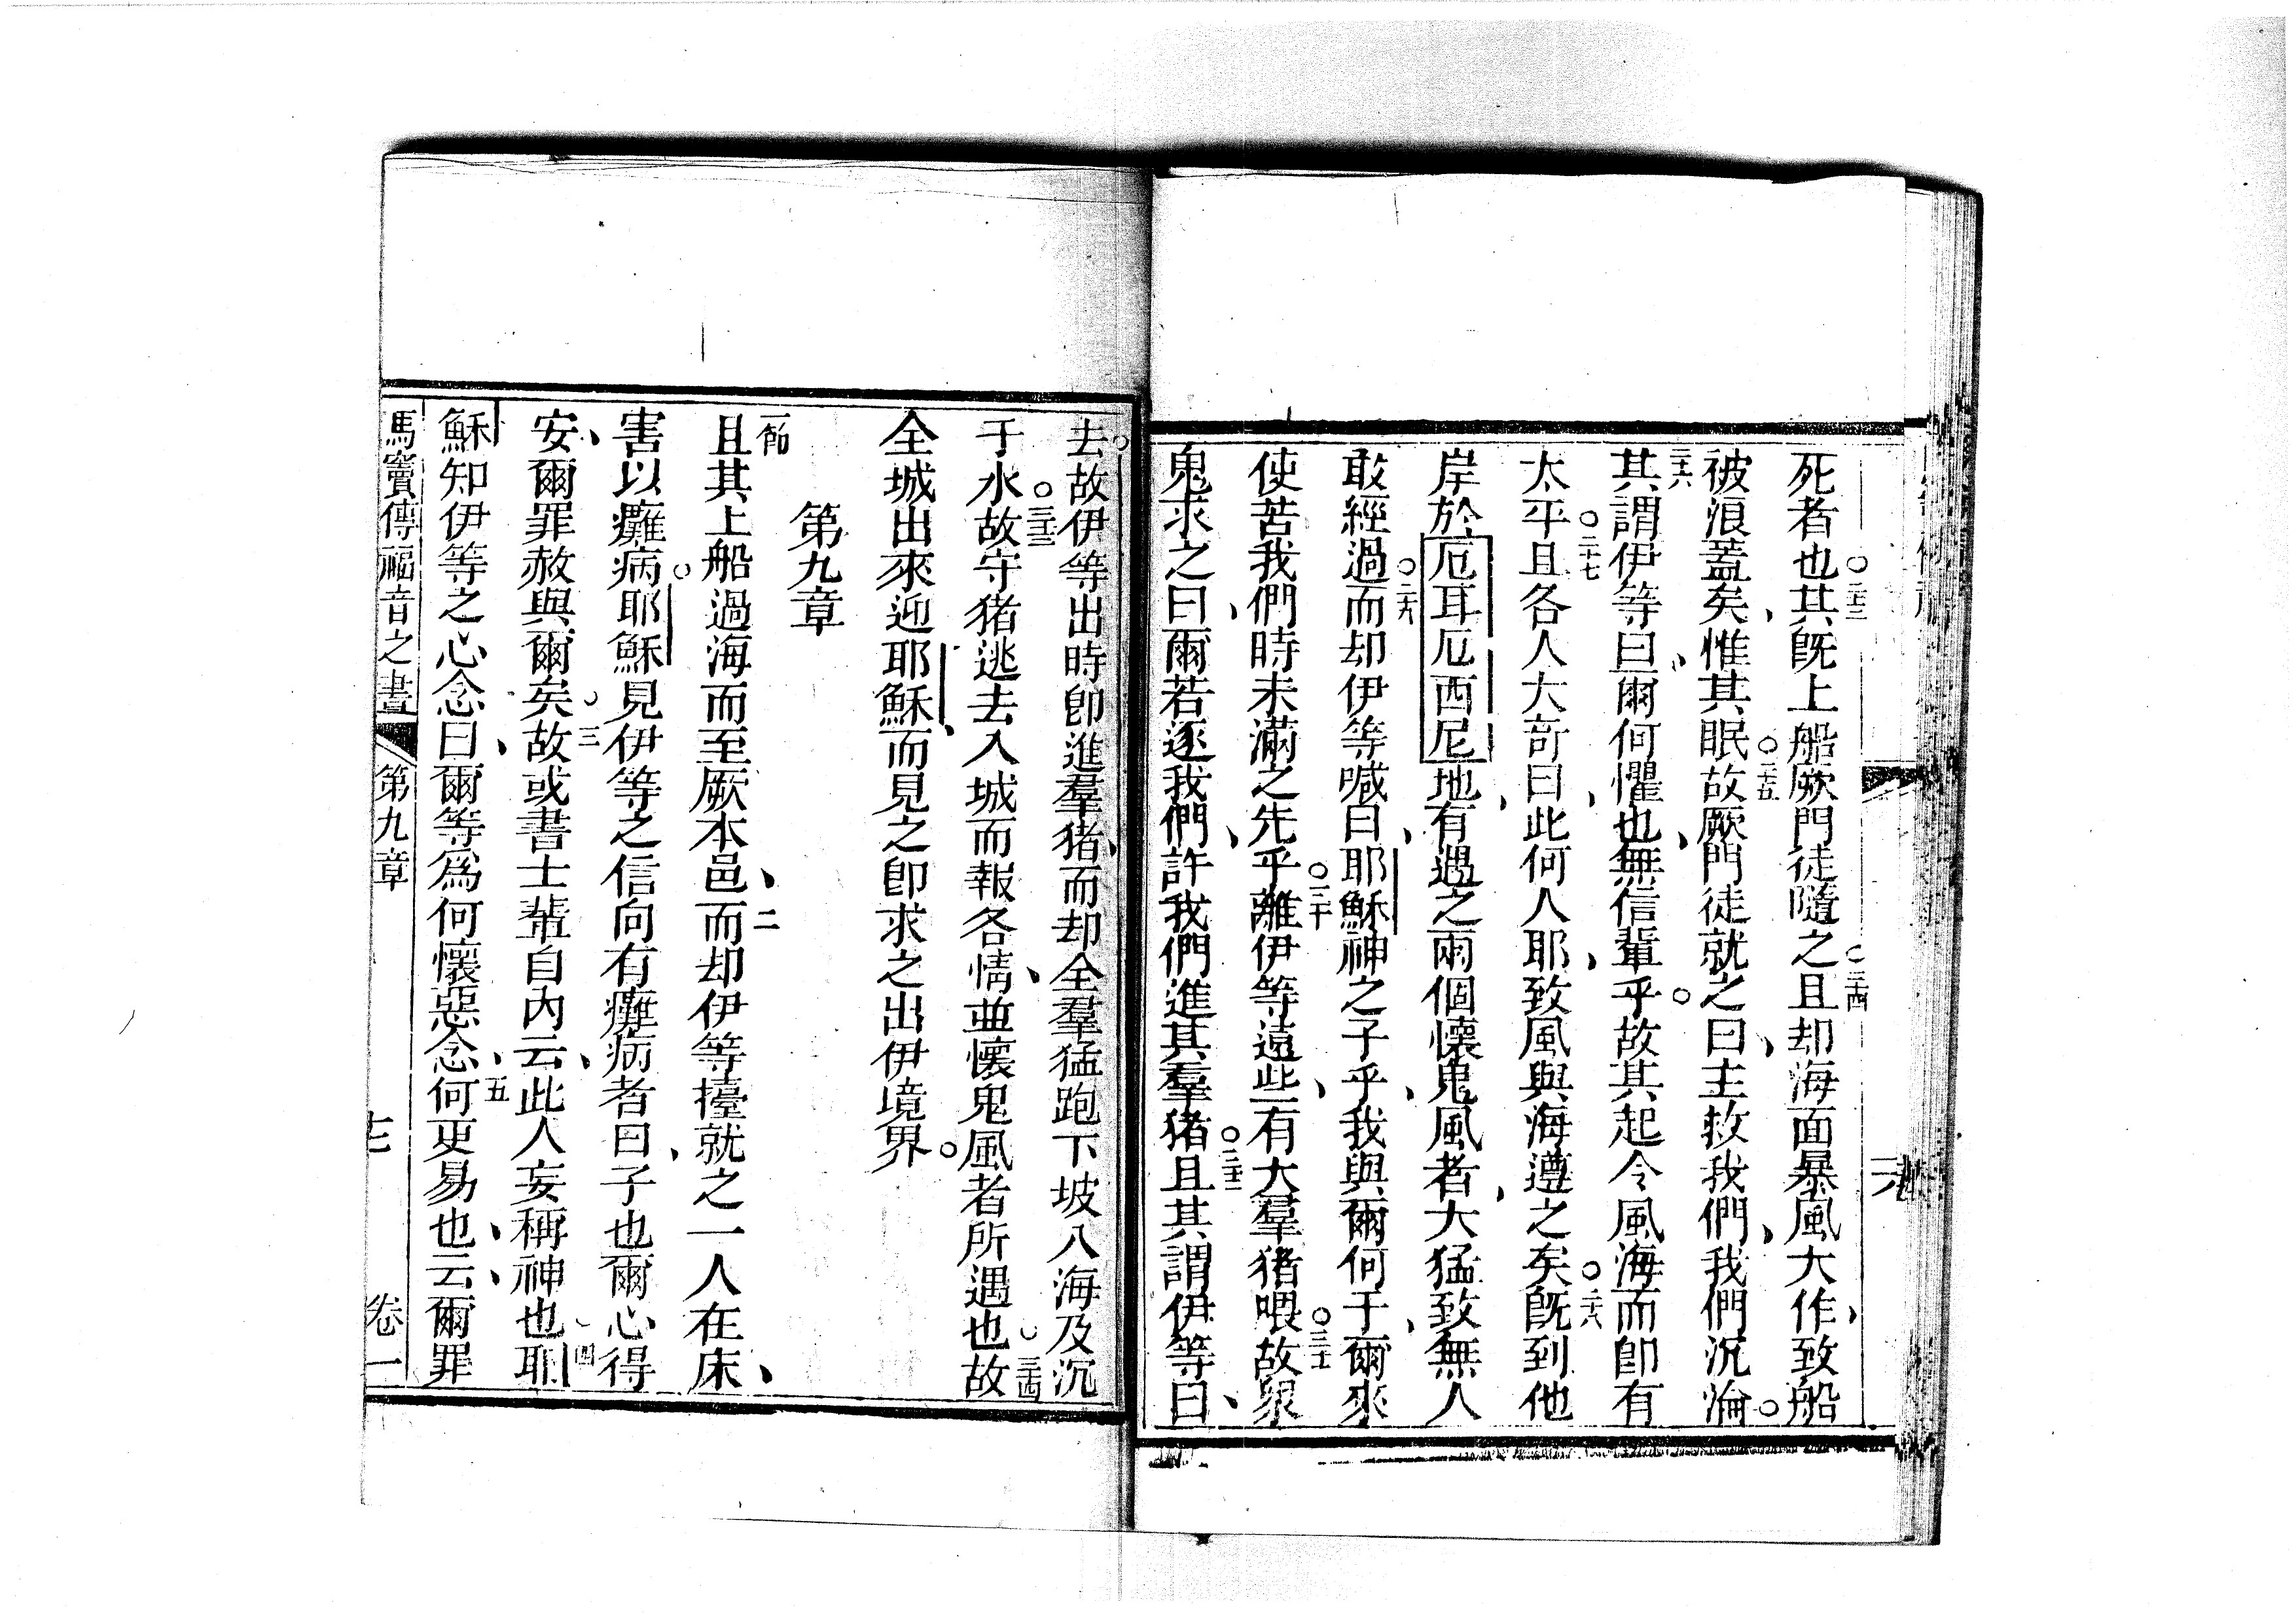 死者也○二十三其旣上船厥門徒隨之○二十四且却海面暴風大作、致船
被浪蓋矣、惟其眠○二十五故厥門徒就之曰、主救我們、我們沉淪○
二十六其謂伊等曰、爾何懼也、無信輩乎○故其起令風海而卽有
太平○二十七且各人大奇曰、此何人耶、致風與海遵之矣○二十八旣到他
岸於厄耳厄西尼地、有遇之兩個懷鬼風者、大猛致無人
敢經過○二十九而却伊等喊曰、耶穌神之子乎、我與爾何于、爾來
使苦我們時未滿之先乎○三十離伊等遠些、有大羣猪喂○三十一故衆
鬼求之曰、爾若逐我們、許我們進其羣猪○三十二且其謂伊等曰、
去○故伊等出時卽進羣猪、而却全羣猛跑下坡入海及沉
于水○三十三故守猪逃去入城而報各情、並懷鬼風者所遇也○三十四故
全城出來迎耶穌、而見之卽求之出伊境界○
第九章
一節且其上船過海而至厥本邑、二而却伊等擡就之一人在床、
害以癱病○耶穌見伊等之信向有癱病者曰、子也爾心得
安、爾罪赦與爾矣○三故或書士輩自內云、此人妄稱神也○四耶
穌知伊等之心念曰、爾等爲何懷惡念、五何更易也、云、爾罪
馬竇傳福音之書 第九章 七 卷一